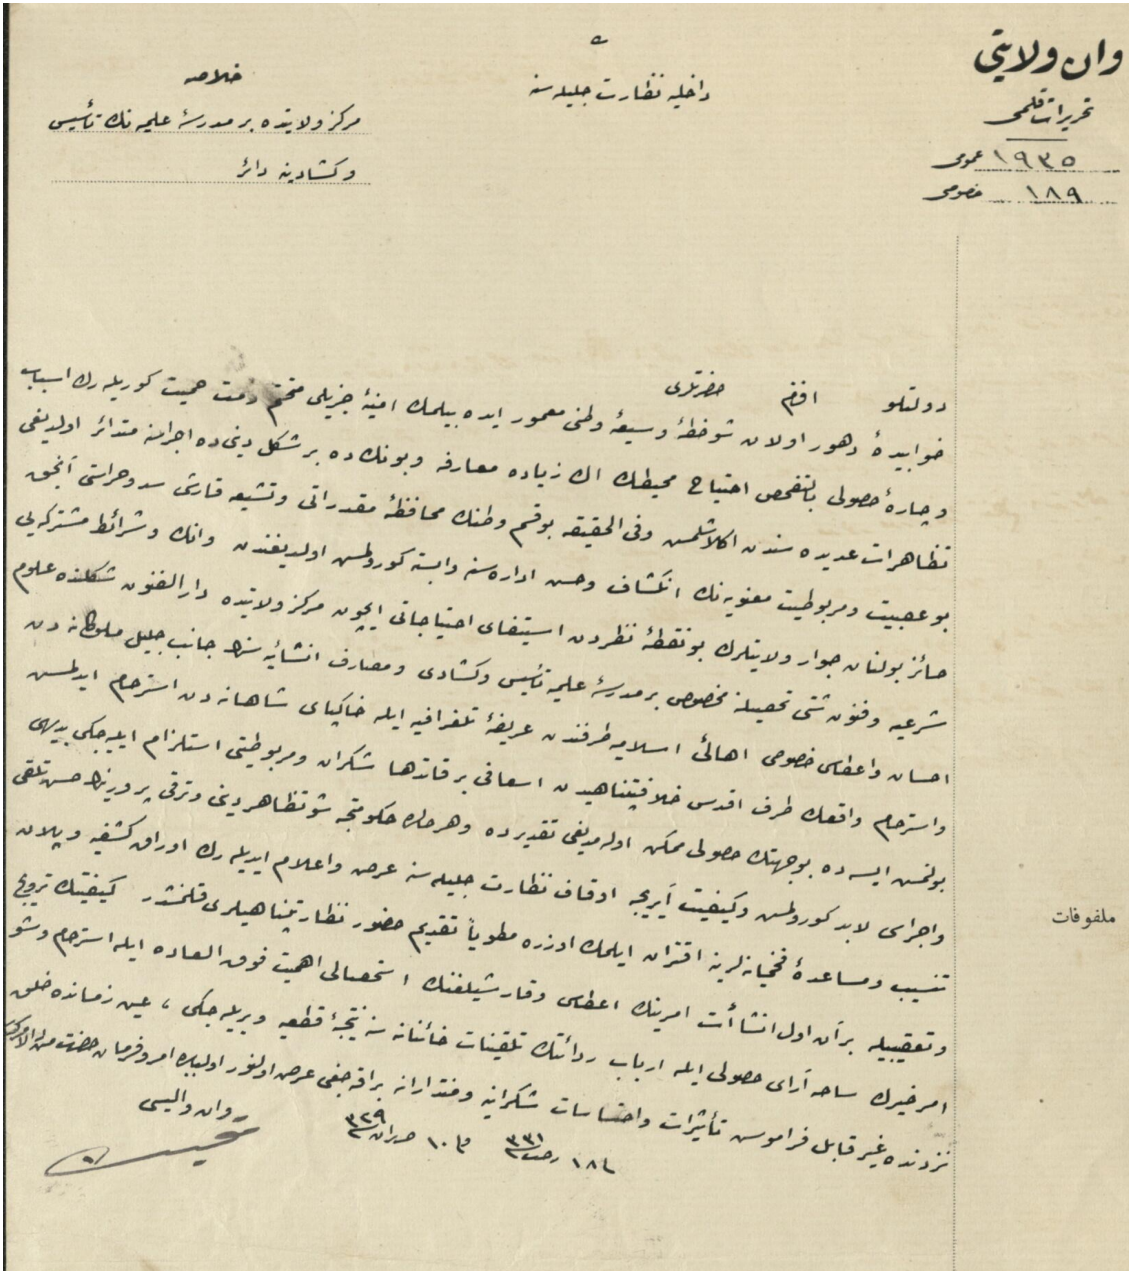 وان ولايتى
تحريرات قلمى
عمومى ١٩٣٥
خصوصى ١٨٩
داخليه نظارت جليله سنه
خلاصه
مركز ولايتده بر مدرسۀ علميه نك تأسيس
و كشادينه دائر
دولتلو افندم حضرتلرى
خوابيدۀ دهور اولان شو خطۀ وسيعۀ وطنى معمور ايده بيلمك امنيۀ جزيلى متحتم ذمت حميت كوريله رك اسباب
و چارۀ حصولى بالتفحص احتياج محيطك اك زياده معارفه و بونك ده بر شكل دينى ده اجراسنه متدائر اولديغى
تظاهرات عديده سندن اكلاشلمش و فى الحقيقه بو قسم وطنك محافظۀ مقدراتى و تشيعه قارشى سد و حراستى آنجق
بو عصبيت و مربوطيت معنويه نك انكشاف و حسن اداره سنه وابسته كورولمش اولديغندن وانك و شرائط مشتركه يى
حائز بولنان جوار ولايتلرك بو نقطۀ نظردن استيفاى احتياجاتى ايچون مركز ولايتده دار الفنون شكلنده علوم
شرعيه و فنون شتى تحصيلنه مخصوص بر مدرسۀ علميه تأسيس و كشادى و مصارف انشائيه سنك جانب جليل ملوكانه دن
احسان و اعطاسى خصوصى اهالئ اسلاميه طرفندن عريضۀ تلغرافيه ايله خاكپاى شاهانه دن استرحام ايدلمش
و استرحام واقعك طرف اقدس خلافتپناهيدن اسعافى بر قاتدها شكران و مربوطيتى استلزام ايليه جكى بديهى
بولنمش ايسه ده بو جهتك حصولى ممكن اوله مديغى تقديرده و هر حالده حكومتجه شو تظاهر دينى و ترقى پرورينك حسن تلقى
و اجراسى لابد كورولمش و كيفيت آيريجه اوقاف نظارت جليله سنه عرض و اعلام ايديله رك اوراق كشفيه و پلان
تنسيب و مساعدۀ فخيمانه لرينه اقتران ايلمك اوزره مطوياً تقديم حضور نظارتپناهيلرى قلنمشدر كيفيتك ترويج
و تعقيبيله بر آن اول انشاآت امرينك اعطاسى و قارشيلغنك استحصالى اهميت فوق العاده ايله استرحام و شو
امر خيرك ساحه آراى حصولى ايله ارباب ردائتك تلقينات خائنانه سنه نتيجۀ قطعيه ويريله جكى ، عين زمانده خلق
نزدنده غير قابل فراموش تأثيرات و احتساسات شكرانه و منتدارانه براقه جغى عرض اولنور اولبابده امر و فرمان حضرت من له الامركدر
فى ١٨ رجب ٣٣١ و فى ١٠ حزيران ٣٢٩
وان واليسى
تحسين
ملفوفات